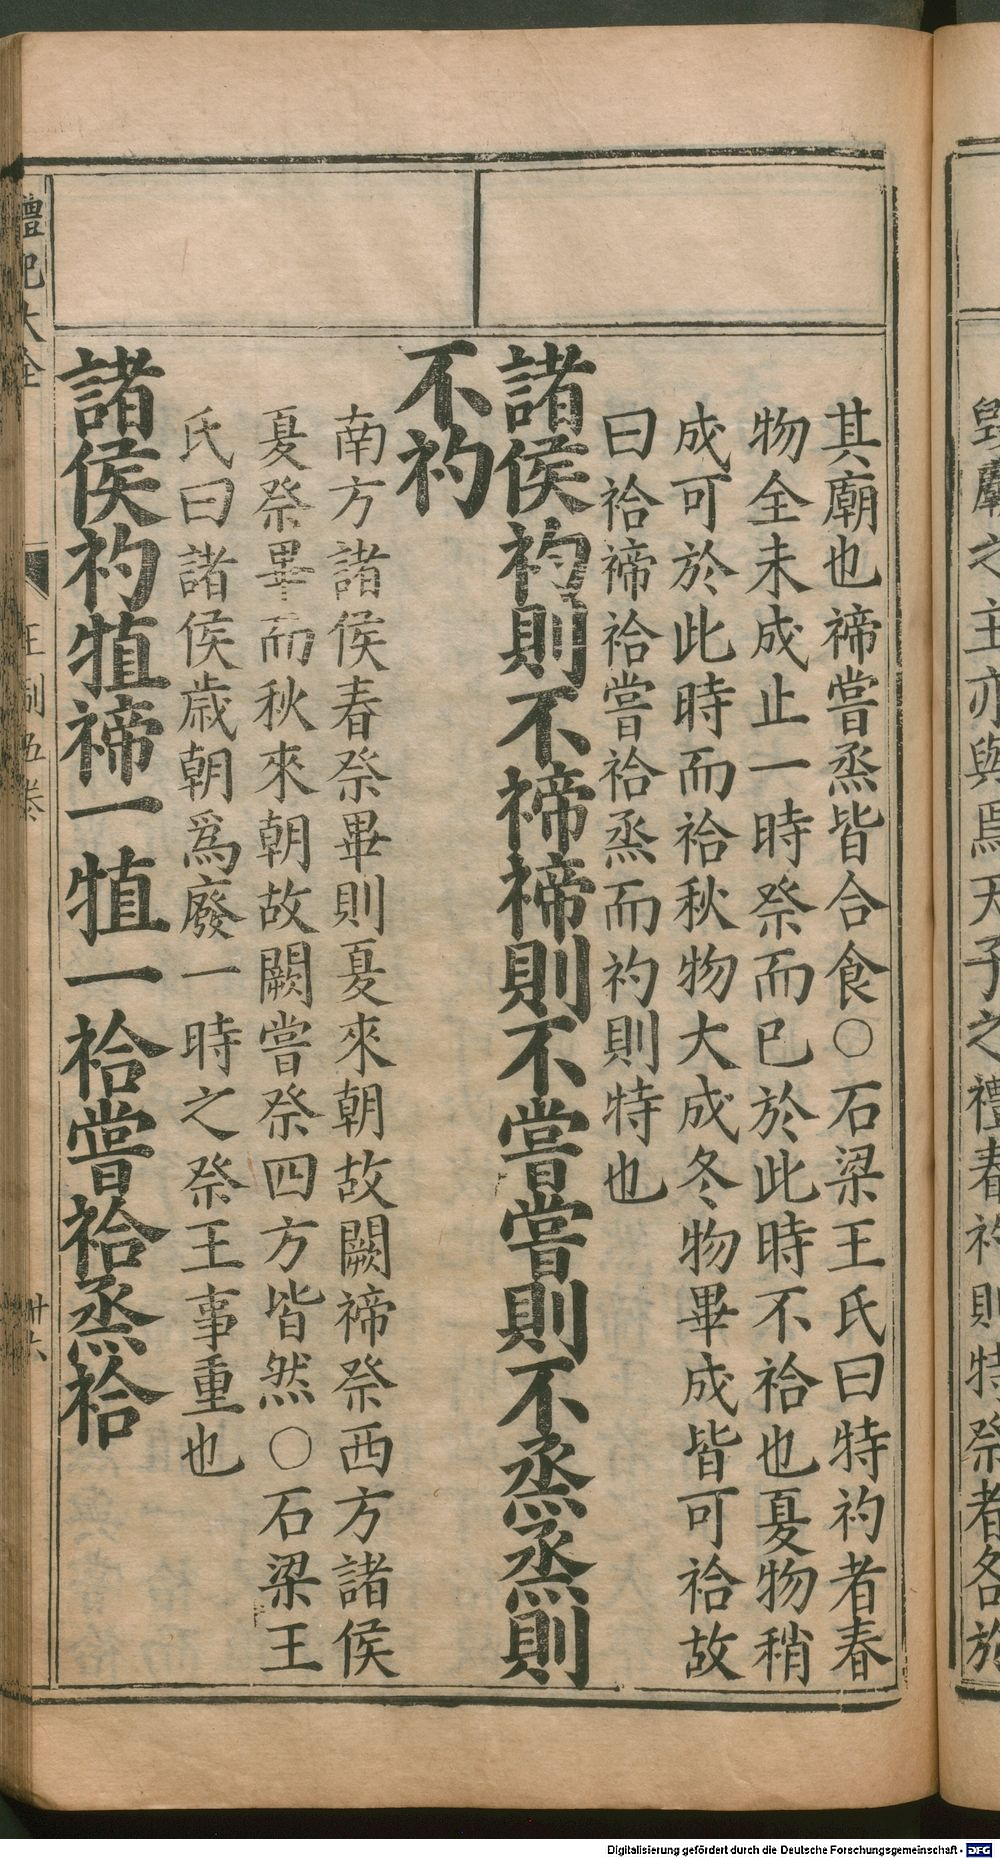 毀廟之主亦與焉天子之禮春礿則特祭者各於
其廟也禘嘗烝皆合食○石梁王氏曰特礿者春
物全未成止一時祭而已於此時不祫也夏物稍
成可於此時而祫秋物大成冬物畢成皆可祫故
曰祫禘祫嘗祫烝而礿則特也
諸侯礿則不禘禘則不嘗嘗則不烝烝則
不礿
南方諸侯春祭畢則夏來朝故闕禘祭西方諸侯
夏祭畢而秋來朝故闕嘗祭四方皆然○石梁王
氏曰諸侯歲朝爲廢一時之祭王事重也
諸侯礿犆禘一犆一祫嘗祫烝祫
禮記大全 王制五卷 卅六
Digitalisierung gefördert durch die Deutsche Forschungsgemeinschaft - DFG